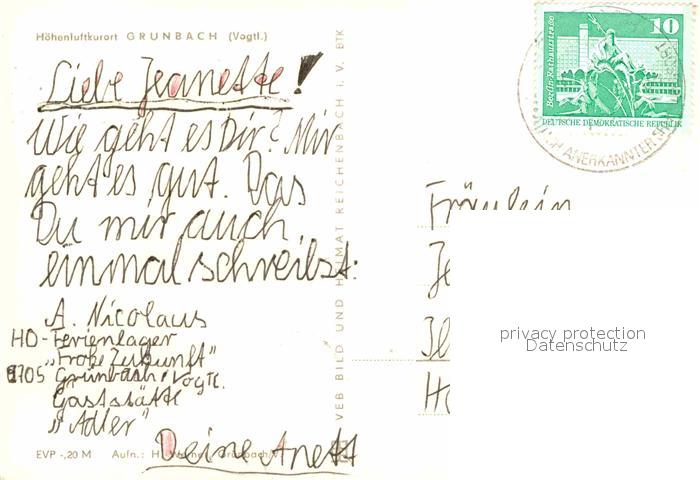 Höhenluftkurort GRÜNBACH (Vogtl.)
Liebe Jeanette!
Wie geht es Dir? Mir
geht es gut. Das
Du mir auch
einmal schreibst:
A. Nicolaus
HO-Ferienlager
„Frohe Zukunft"
9705 Grünbach/Vogtl.
Gaststätte
„Adler"
Deine Anett
EVP -,20 M Aufn.: H. Grünbach/V.
VEB BILD UND HEIMAT REICHENBACH i. V. BIK
10
Berlin-Rathausstraße
DEUTSCHE DEMOKRATISCHE REPUBLIK
ANERKANNTER
Fräulein
privacy protection
Datenschutz